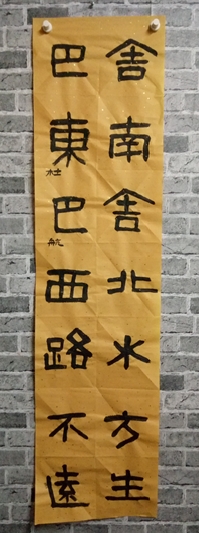 舍南舍北水方生
巴東巴西路不遠
杜
航